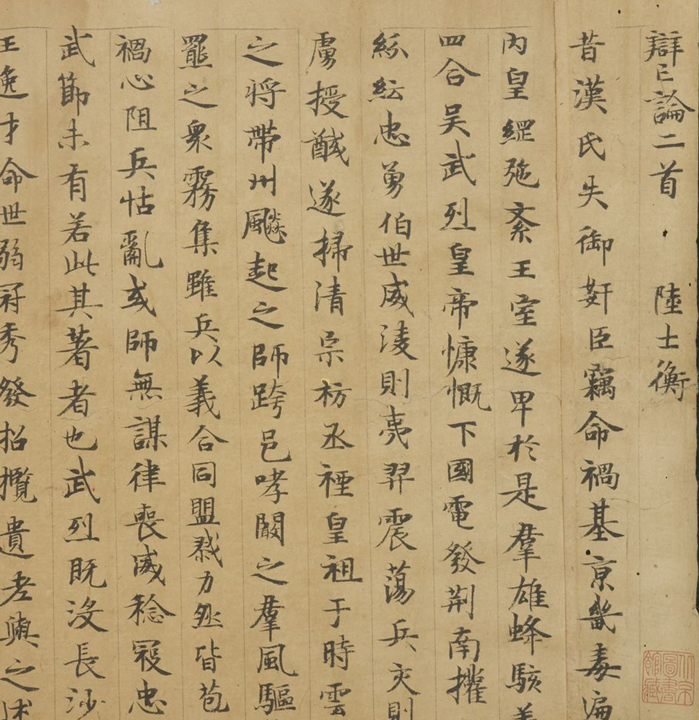 辯亡論二首 陸士衡
昔漢氏失御姧臣竊命禍基京畿毒遍
內皇綱弛紊王室遂卑於是羣雄蜂駭義
四合吳武烈皇帝慷慨下國電發荊南攉
紛紜忠勇伯世威淩則夷羿震蕩兵交則
虜授馘遂掃清宗枋丞禋皇祖于時雲
之將帶州飈起之師跨邑哮闞之羣風驅
羆之衆霧集雖兵以義合同盟勠力然皆苞
禍心阻兵怙亂或師無謀律喪威稔寇忠
武節未有若此其著者也武烈旣沒長沙
王逸才命世弱冠秀發招攬遺老與之述